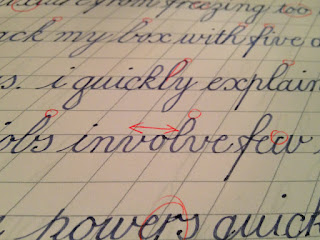 from freezing too
my box with five
s. i quickly explain
jobs involve few
powers quick